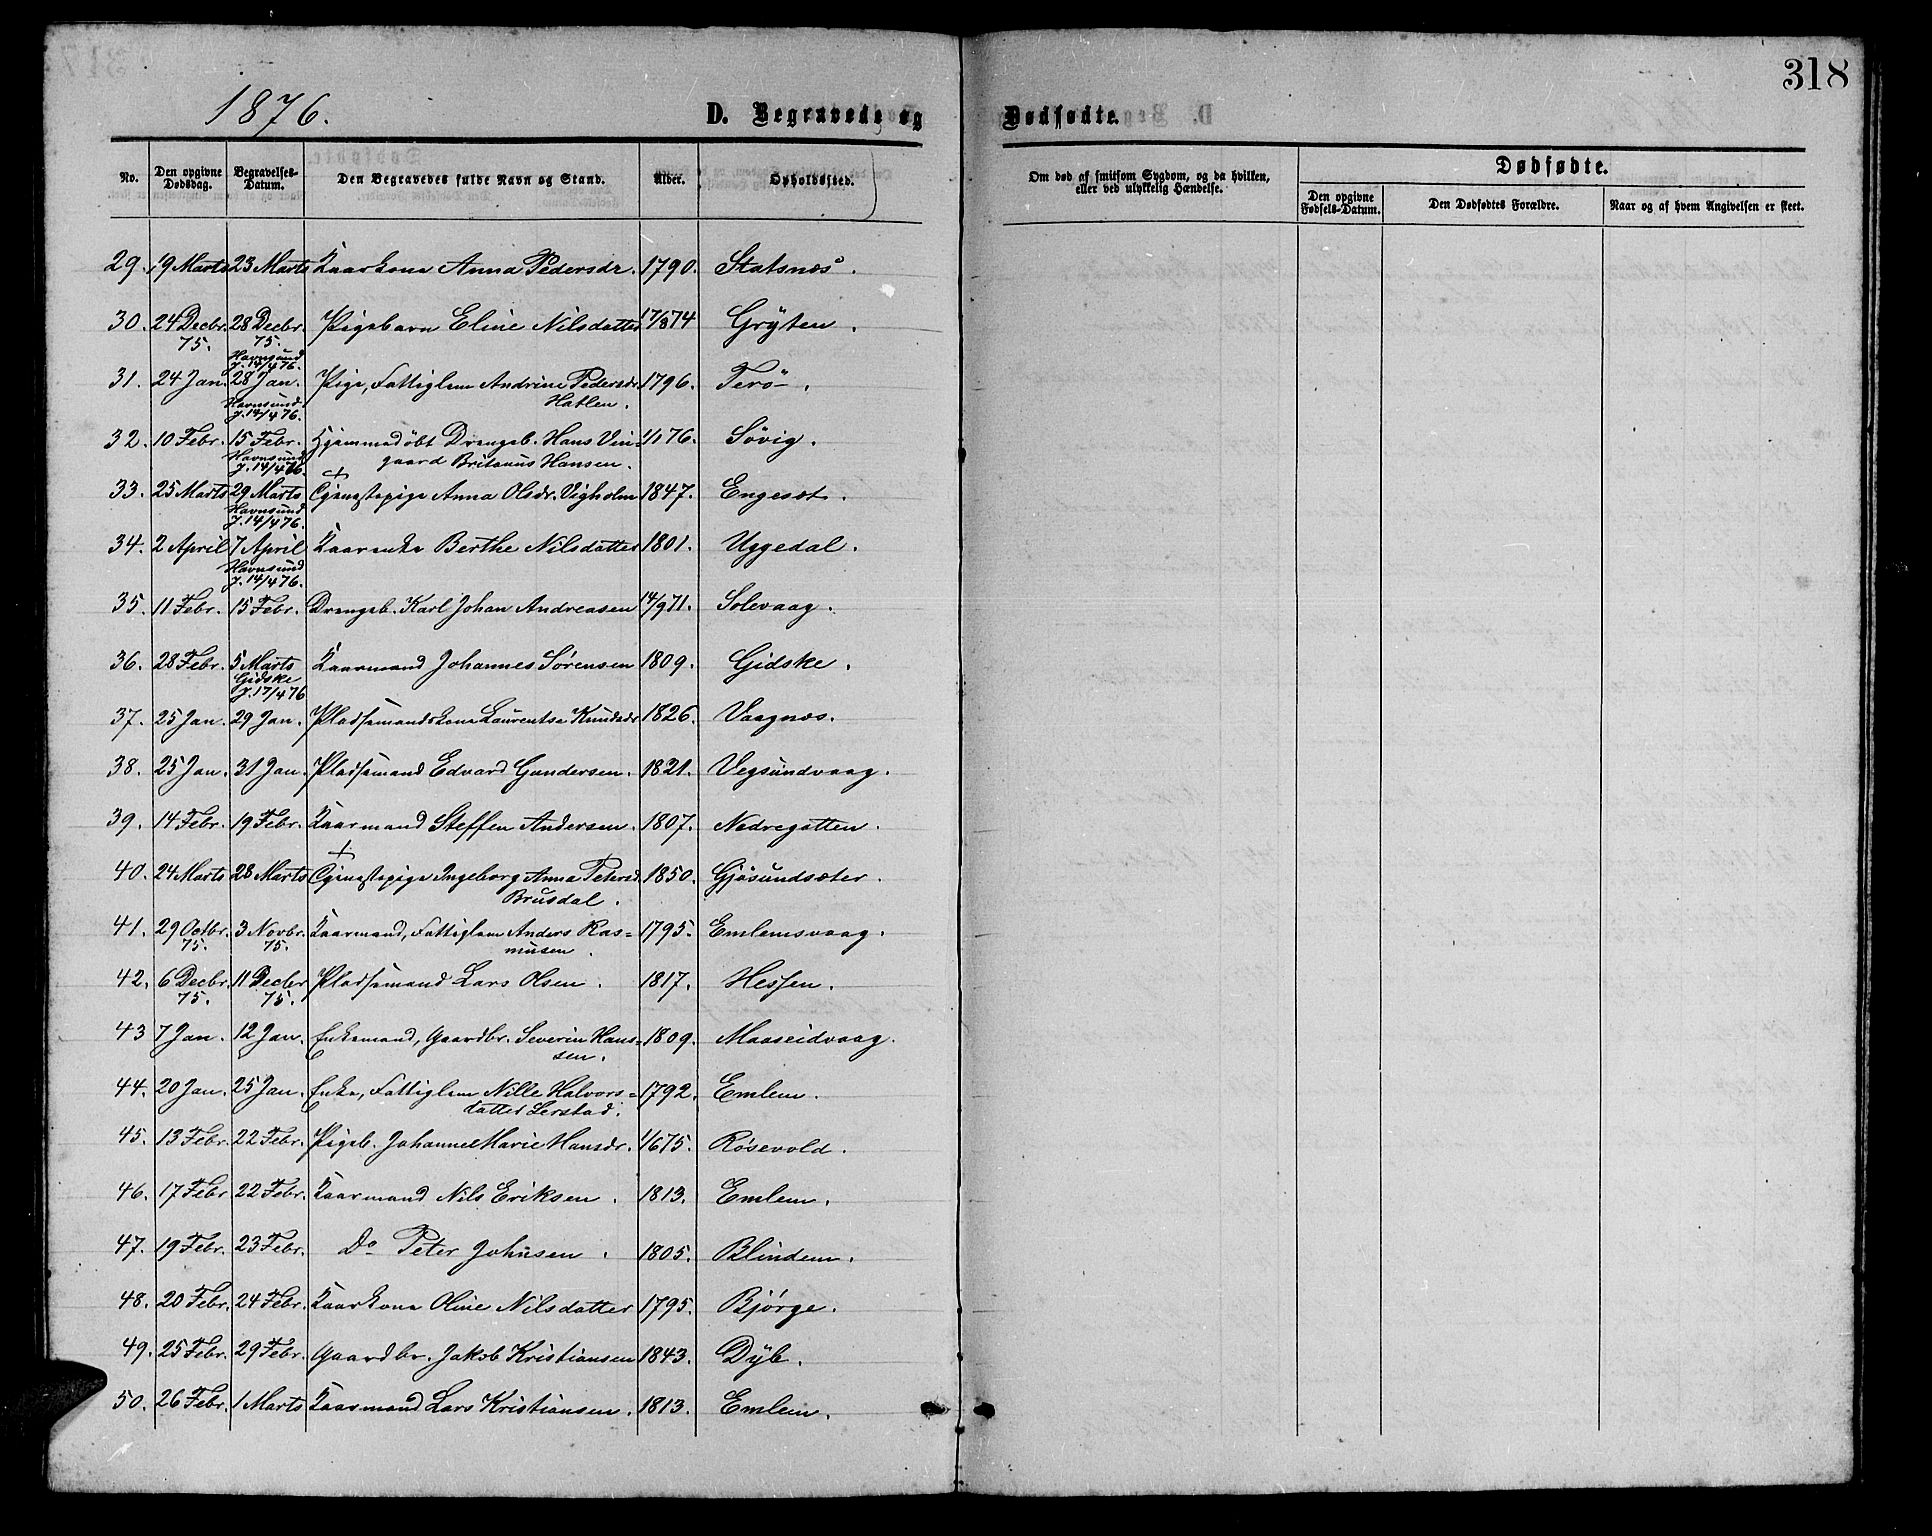 318
1876.
D. Begravede og Dødfødte.
No. Den opgivne Dødsdag. Begravelses-Datum. Den Begravedes fulde Navn og Stand. Alder. Opholdssted. Om død af smitsom Sygdom, og da hvilken, eller ved ulykkelig Hændelse. Dødfødte.
Den opgivne Fødsels-Datum. Den Dødfødtes Forældre. Naar og af hvem Angivelsen er skeet.
29. 19 Marts 23 Marts Kaarkone Anna Pedersdr. 1790. Statsnæs.
30. 24 Decbr. 28 Decbr. Pigebarn Eline Nilsdatter 17/874 Gryten.
75. 75.
Havnsund
J. 14/4 76.
31. 24 Jan. 28 Jan. Pige, Fattiglem Andrine Pedersdr. 1796. Terö.
Havnsund Hatlen.
J. 14/4 76.
32. 10 Febr. 15 Febr. Hjemmedøbt Drengeb. Hans Vin= 1/1 76. Søvig.
Havnsund gaard Britanus Hansen.
J. 14/4 76.
33. 25 Marts 29 Marts Tjenestepige Anna Olsdr. Vigholm 1847. Engeset.
Havnsund
J. 14/4 76.
34. 2 April 7 April Kaarenke Berthe Nilsdatter 1801. Uggedal.
Havnsund
J. 14/4 76.
35. 11 Febr. 15 Febr. Drengeb. Karl Johan Andreasen 14/971. Solevaag.
36. 28 Febr. 5 Marts Kaarmand Johannes Sørensen 1809. Gidske.
Gidske
J. 17/4 76
37. 25 Jan. 29 Jan. Pladsemandskone Laurentse Knudsdr 1826. Vaagnæs.
38. 25 Jan. 31 Jan. Pladsemand Edvard Gundersen. 1821. Vegsundvaag.
39. 14 Febr. 19 Febr. Kaarmand Steffen Andersen. 1807. Nedregotten.
40. 24 Marts 28 Marts Tjenestepige Ingeborg Anna Petersd. 1850. Gjøsundsæter.
Brusdal.
41. 29 Octbr. 3 Novbr. Kaarmand, Fattiglem Anders Ras= 1795. Emlemsvaag.
75. 75. musen.
42. 6 Decbr. 11 Decbr Pladsemand Lars Olsen. 1817. Hessen.
75. 75.
43 7 Jan. 12 Jan. Enkemand, Gaardbr. Severin Hans= 1809. Maaseidvaag.
sen.
44. 20 Jan. 25 Jan. Enke, Fattiglem Nille Halvors= 1792. Emlem.
datter Lerstad.
45. 13 Febr. 22 Febr. Pigeb. Johanne Marie Hansdr. 1/675. Røsevold.
46. 17 Febr 22 Febr. Kaarmand Nils Eriksen. 1813. Emlem.
47. 19 Febr. 23 Febr. Do Peter Johnsen. 1805. Blindem.
48. 20 Febr. 24 Febr. Kaarkone Oline Nilsdatter 1795. Bjørge.
49. 25 Febr. 29 Febr. Gaardbr. Jakob Kristiansen 1843. Dyb.
50. 26 Febr. 1 Marts Kaarmand Lars Kristiansen. 1813. Emlem.